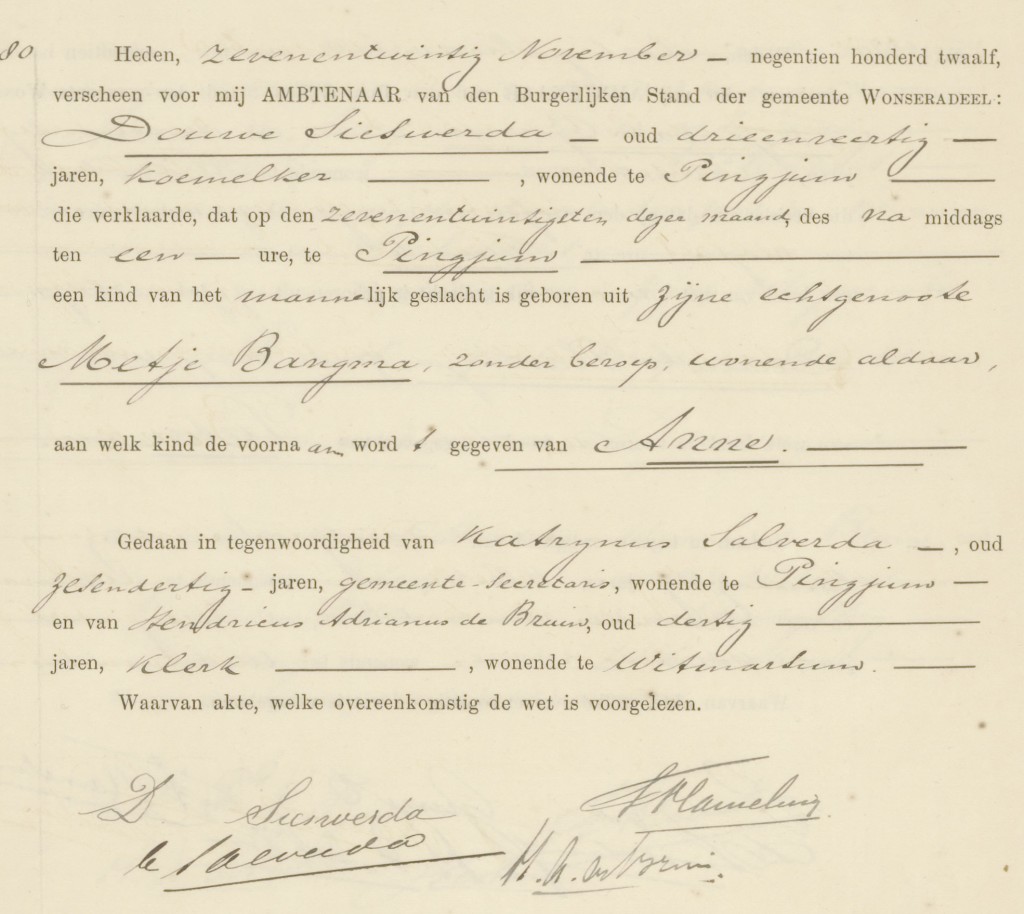 80
Heden, zevenentwintig November – negentien honderd twaalf,
verscheen voor mij AMBTENAAR van den Burgerlijken Stand der gemeente WONSERADEEL:
Douwe Sieswerda – oud drieenveertig —
jaren, koemelker ——— , wonende te Pingjum ———
die verklaarde, dat op den zevenentwintigsten dezer maand, des na middags
ten een — ure, te Pingjum ———
een kind van het mannelijk geslacht is geboren uit zijne echtgenoote
Metje Bangma, zonder beroep, wonende aldaar,
aan welk kind de voornaam wordt gegeven van Anne. ———
Gedaan in tegenwoordigheid van Katrynus Salverda –, oud
zesendertig – jaren, gemeente-secretaris, wonende te Pingjum —
en van Hendricus Adrianus de Bruin, oud dertig ———
jaren, klerk ——— , wonende te Witmarsum. ———
Waarvan akte, welke overeenkomstig de wet is voorgelezen.
D. Sieswerda
Salverda
H. A. de Bruin.